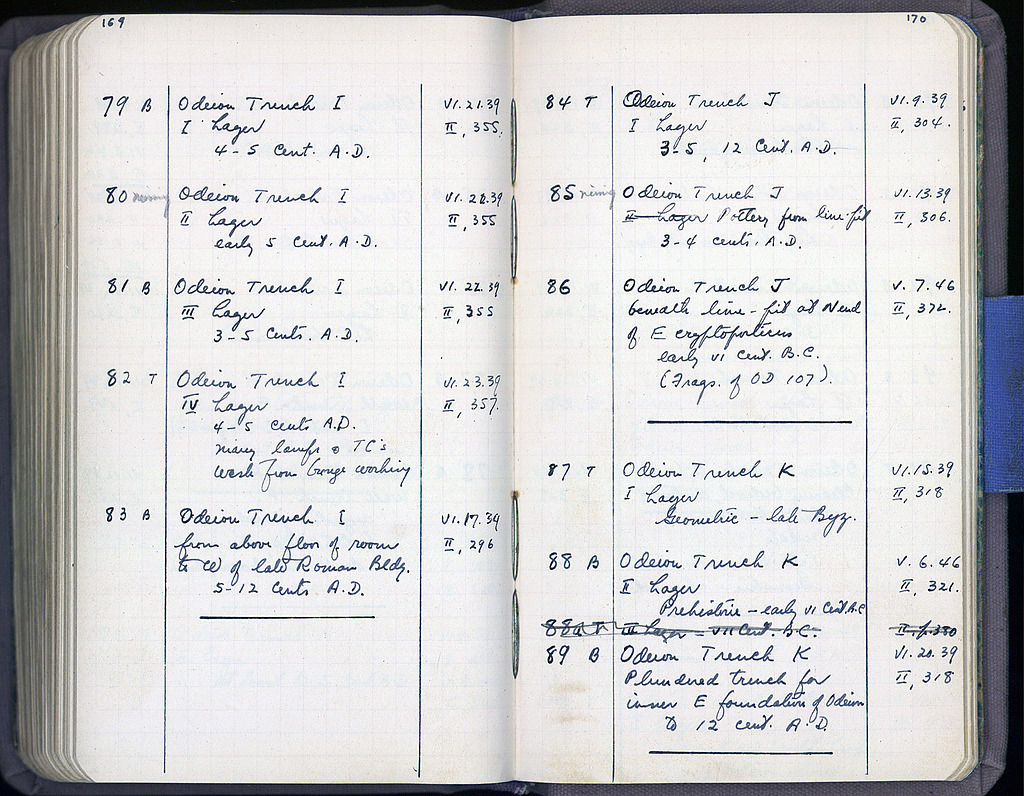 169
79 B Odeion Trench I VI.21.39
I Lager II, 355.
4-5 Cent. A.D.
80 missing Odeion Trench I VI.22.39
II Lager II, 355
early 5 Cent. A.D.
81 B Odeion Trench I VI.22.39
III Lager II, 355
3-5 Cents. A.D.
82 T Odeion Trench I VI.23.39
IV Lager II, 357.
4-5 cents A.D.
many lamps & TC's
waste from bronze working
83 B Odeion Trench I VI.17.39
from above floor of room II, 296
to W of late Roman Bldg.
5-12 Cents A.D.
170
84 T Odeion Trench J VI.9.39
I Lager II, 304.
3-5, 12 Cent. A.D.
85 missing Odeion Trench J VI.13.39
II Lager Pottery from lime-pit II, 306.
3-4 cents. A.D.
86 Odeion Trench J V.7.46
beneath lime-pit at N end II, 372.
of E cryptoporticus
early VI Cent. B.C.
(Frags. of OD 107).
87 T Odeion Trench K VI.15.39
I Lager II, 318
Geometric - late Byz.
88 B Odeion Trench K V.6.46
II Lager II, 321.
Prehistoric - early VI Cent B.C
88a T III Lager - VII Cent. B.C. II p.380
89 B Odeion Trench K VI.20.39
Plundered trench for II, 318
inner E foundation of Odeion
To 12 cent. A.D.